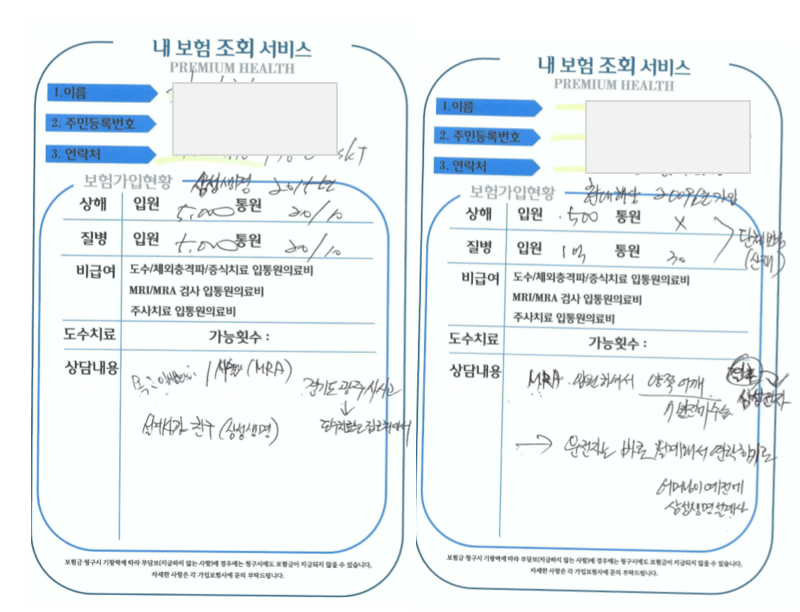 내 보험 조회 서비스
PREMIUM HEALTH
1.이름
2. 주민등록번호
3. 연락처
SKT
보험가입현황 삼성생명
상해 입원 5,000 통원 20/10
질병 입원 5,000 통원 20/10
비급여 도수/체외충격파/증식치료 입통원의료비
MRI/MRA 검사 입통원의료비
주사치료 입통원의료비
도수치료 가능횟수 :
상담내용
(MRA)
경기도 광주 사시고
친구 (삼성생명)
보험금 청구시 기왕력에 따라 부담보(지급하지 않는 사항)에 경우에는 청구시에도 보험금이 지급되지 않을 수 있습니다.
자세한 사항은 각 가입보험사에 문의 부탁드립니다.
내 보험 조회 서비스
PREMIUM HEALTH
1.이름
2. 주민등록번호
3. 연락처
보험가입현황 현대해상 2009년 가입
상해 입원 500 통원 X
질병 입원 1억 통원 30
단체보험
(산재)
비급여 도수/체외충격파/증식치료 입통원의료비
MRI/MRA 검사 입통원의료비
주사치료 입통원의료비
도수치료 가능횟수 :
상담내용 MRA 입원하셔서 양쪽어깨
삼성전자
→ 운전자는 바로 설계해서 연락하기로
어머님이 예전에
삼성생명 설계사
보험금 청구시 기왕력에 따라 부담보(지급하지 않는 사항)에 경우에는 청구시에도 보험금이 지급되지 않을 수 있습니다.
자세한 사항은 각 가입보험사에 문의 부탁드립니다.